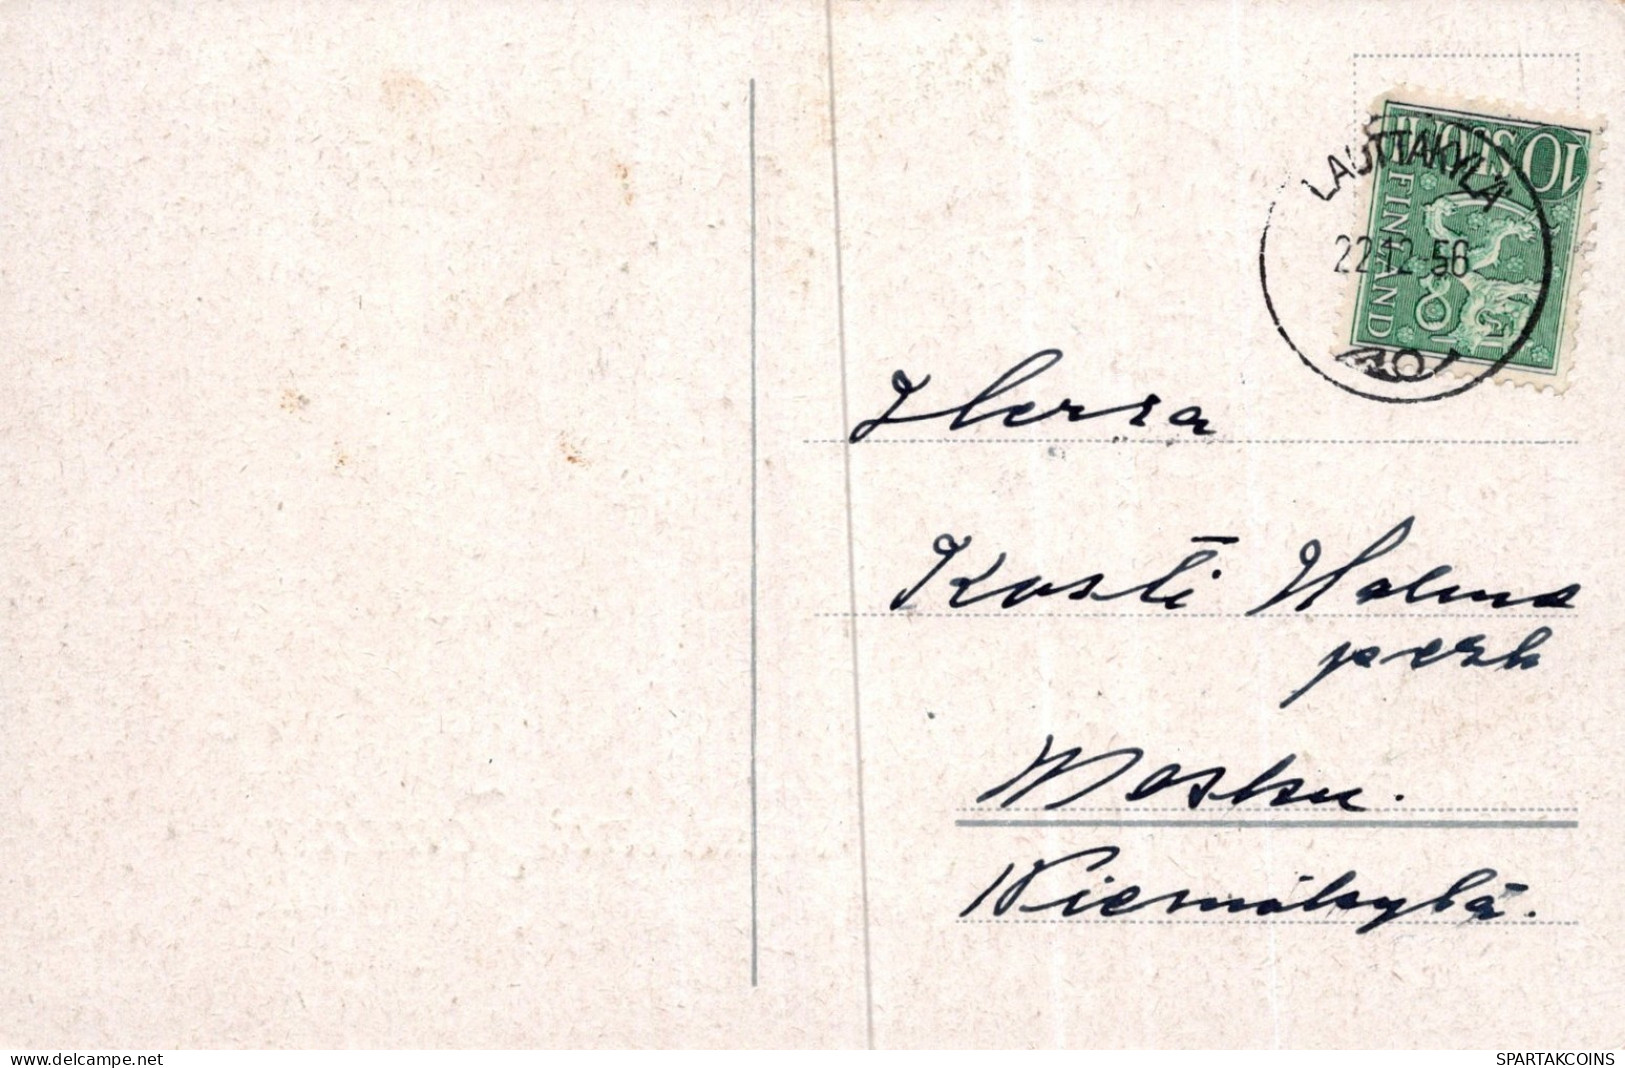 10 SUOMI
FINLAND 8
LAUTTAKYLÄ
22.12.56
Herra
Kosti Holma
perh
Mosku.
Niemäkylä.
delcampe.net
SPARTAKCOINS